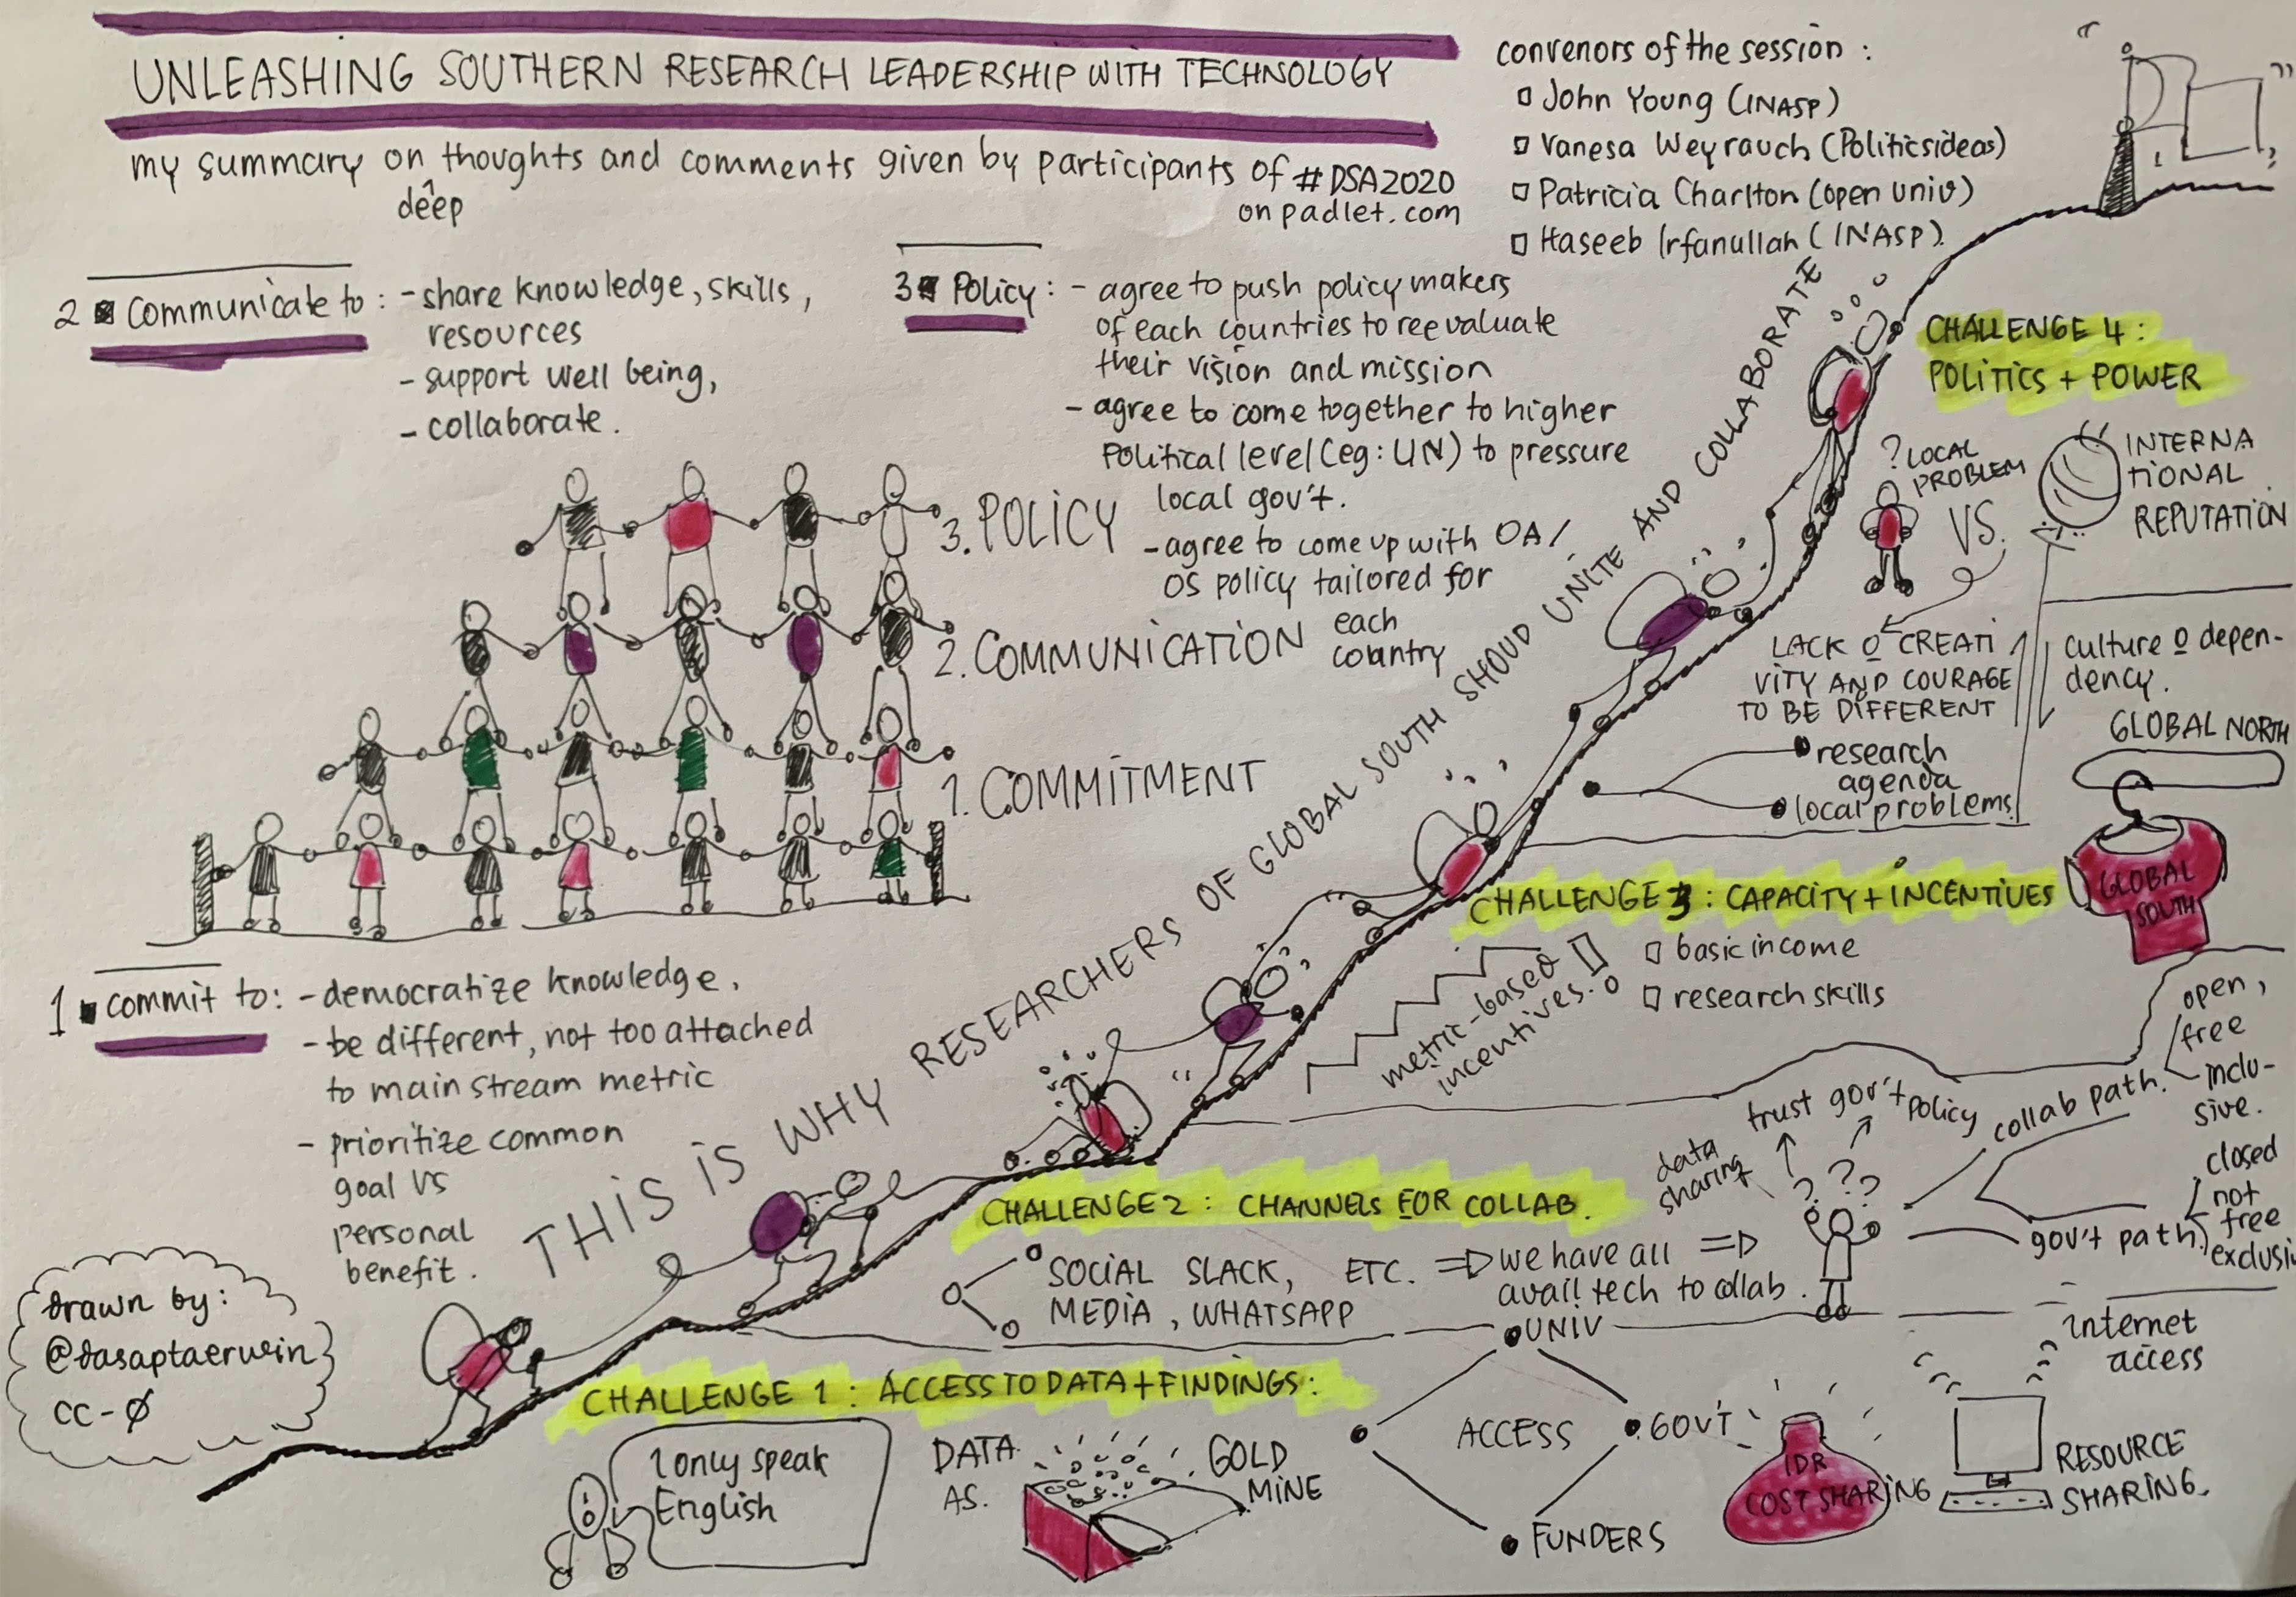 UNLEASHING SOUTHERN RESEARCH LEADERSHIP WITH TECHNOLOGY
my summary on thoughts and comments given by participants of #DSA2020
deep
on padlet.com
convenors of the session :
John Young (INASP)
Vanesa Weyrauch (Politicsideas)
Patricia Charlton (open univ)
Haseeb Irfanullah (INASP)
2 communicate to : - share knowledge, skills,
resources
- support well being,
- collaborate.
3 Policy : - agree to push policy makers
of each countries to reevaluate
their vision and mission
- agree to come together to higher
political level (eg: UN) to pressure
local gov't.
- agree to come up with OA/
OS policy tailored for
each
country
3. POLICY
2. COMMUNICATION
1. COMMITMENT
1 commit to: - democratize knowledge.
- be different, not too attached
to main stream metric
- prioritize common
goal vs
personal
benefit.
THIS IS WHY RESEARCHERS OF GLOBAL SOUTH SHOUD UNITE AND COLLABORATE
CHALLENGE 4 :
POLITICS + POWER
? LOCAL
PROBLEM
VS.
INTERNA
TIONAL
REPUTATION
LACK O CREATI
VITY AND COURAGE
TO BE DIFFERENT
culture o depen-
dency.
research
agenda
local problems
GLOBAL NORTH
GLOBAL
SOUTH
CHALLENGE 3 : CAPACITY + INCENTIVES
metric-based
incentives.
basic income
research skills
CHALLENGE 2 : CHANNELS FOR COLLAB.
SOCIAL SLACK, ETC. ⇒ we have all ⇒
MEDIA, WHATSAPP avail tech to collab.
data
sharing
trust gov't policy
? ? ? ?
collab path.
open,
free
inclu-
sive.
gov't path.
closed
not
free
exclusi
CHALLENGE 1 : ACCESS TO DATA + FINDINGS :
I only speak
English
DATA
AS.
GOLD
MINE
UNIV
ACCESS
GOV'T
FUNDERS
IDR
COST SHARING
internet
access
RESOURCE
SHARING.
drawn by:
@dasaptaerwin
CC-Ø